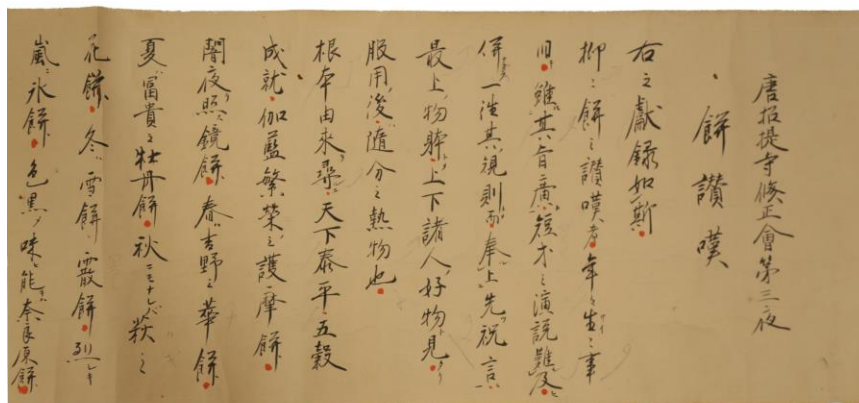 唐招提寺修正會第三夜
、餅讃嘆
右之獻録如斯
抑々餅之讃嘆者年々生々事
旧雖其旨廣短才之演説難及
併一往其規則奉上先祝言
最上物躰上下諸人好物見
服用後随分之熱物也
根本由來尋天下泰平五穀
成就伽藍繁榮之護摩餅
闇夜照鏡餅春吉野之華餅
夏富貴之牡丹餅秋ニモナレバ萩之
花餅冬雪餅霰餅烈シキ
嵐ニ氷餅色黒ク味能奈良原餅